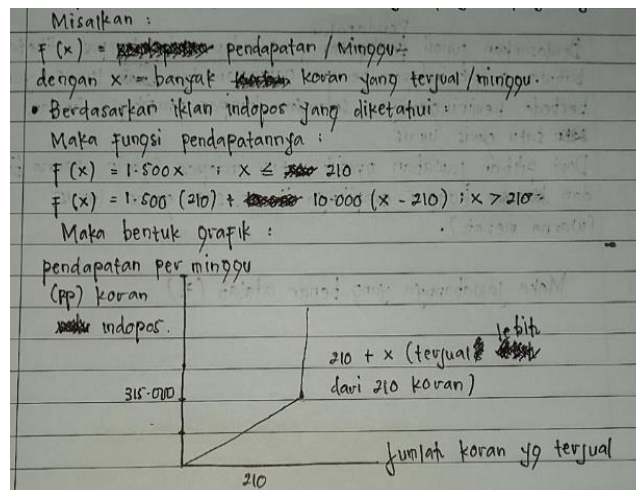 Misalkan :
F (x) = pendapatan / Minggu
dengan x = banyak koran yang terjual / minggu.
• Berdasarkan iklan indopos yang diketahui :
Maka Fungsi pendapatannya :
F (x) = 1.500x ; x ≤ 210
F (x) = 1.500 (210) + 10.000 (x - 210) ; x > 210
Maka bentuk grafik :
pendapatan per minggu
(Rp) koran
indopos.
210 + x (terjual lebih
dari 210 koran)
315.000
Jumlah koran yg terjual
210